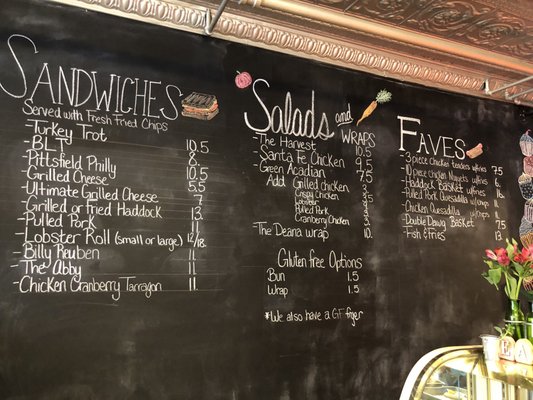 SANDWICHES
Served with Fresh Fried Chips
- Turkey Trot 10.5
- BLT 8.
- Pittsfield Philly 10.5
- Grilled Cheese 5.5
- Ultimate Grilled Cheese 7
- Grilled or fried Haddock 13.
- Pulled Pork 11.
- Lobster Roll (small or large) 12/18
- Billy Reuben 11.
- The Abby 11.
- Chicken Cranberry Tarragon 11.
Salads and WRAPS
- The Harvest 10.5
- Santa Fe Chicken 9.5
- Green Acadian 7.5
Add: Grilled chicken
Crispy Chicken
Lobster
Pulled Pork
Cranberry Chicken
- The Deana wrap 10.
Gluten free Options
Bun 1.5
Wrap 1.5
*We also have a GF fryer
FAVES
- 3 piece Chicken tenders w/fries 7.5
- 10 piece Chicken Nuggets w/fries
- Haddock Basket w/fries
- Pulled Pork Quesadilla
- Chicken Quesadilla
- Double Dawg Basket 7.5
- Fish & Fries 13.
EA